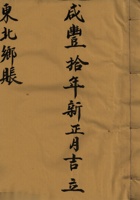 咸豐拾年新正月吉立
東北鄉賬